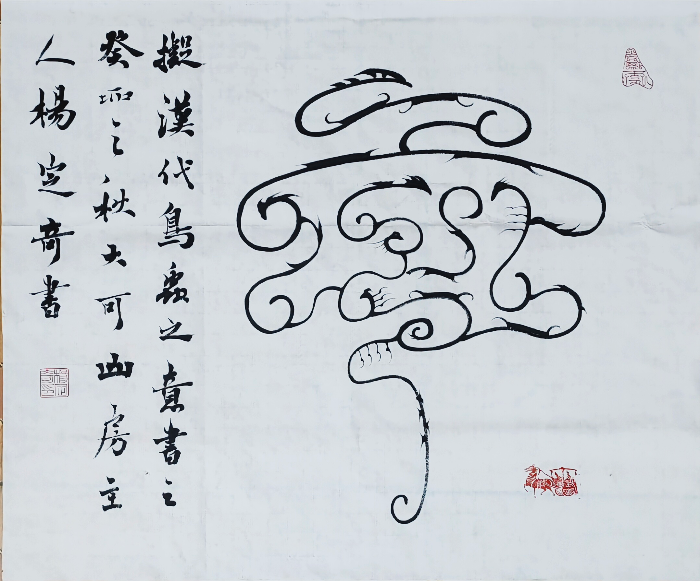 擬漢代鳥蟲之意書之
癸卯之秋大可山房主
人楊定奇書